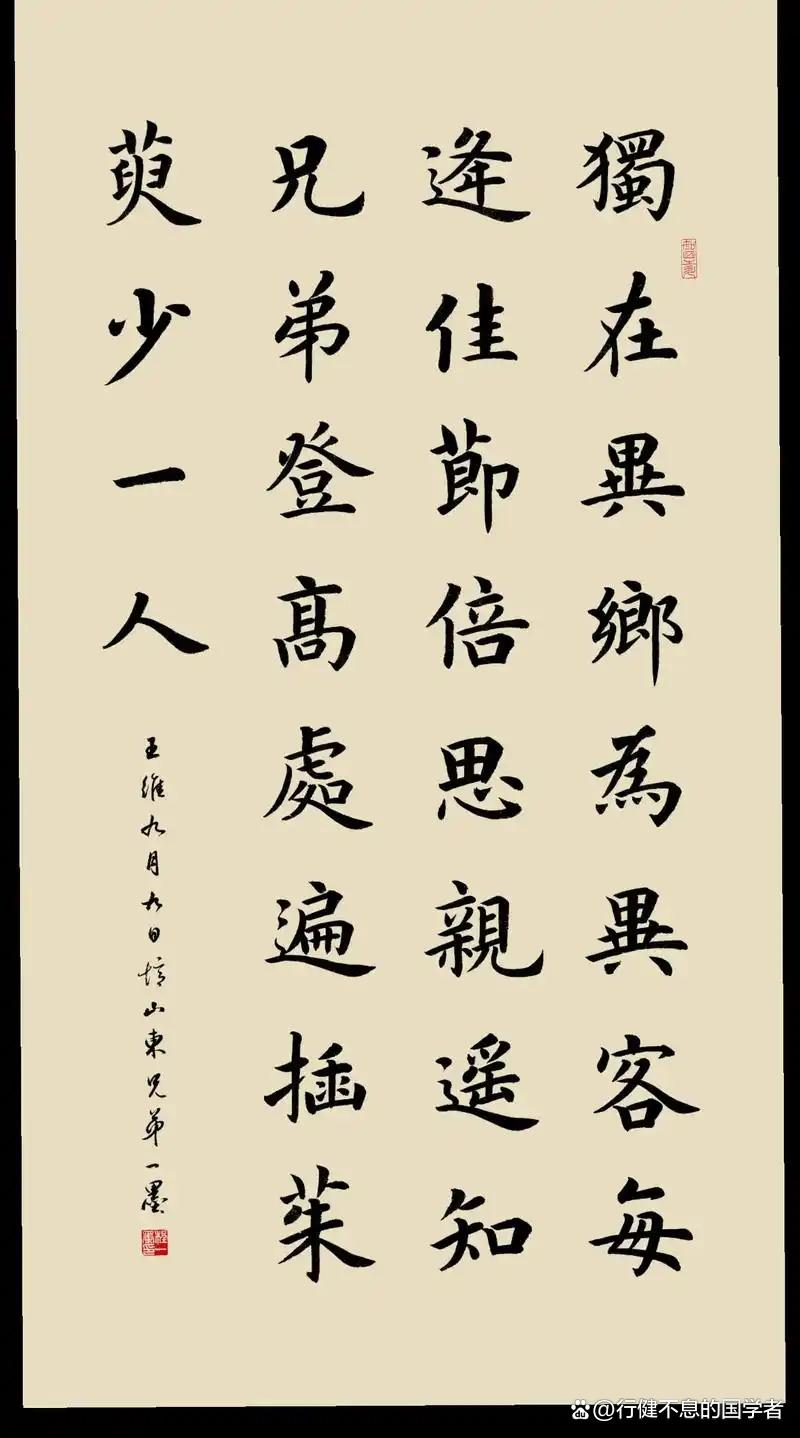 獨在異鄉為異客每
逢佳節倍思親遥知
兄弟登高處遍插茱
萸少一人
王維九月九日憶山東兄弟一墨
@行健不息的国学者